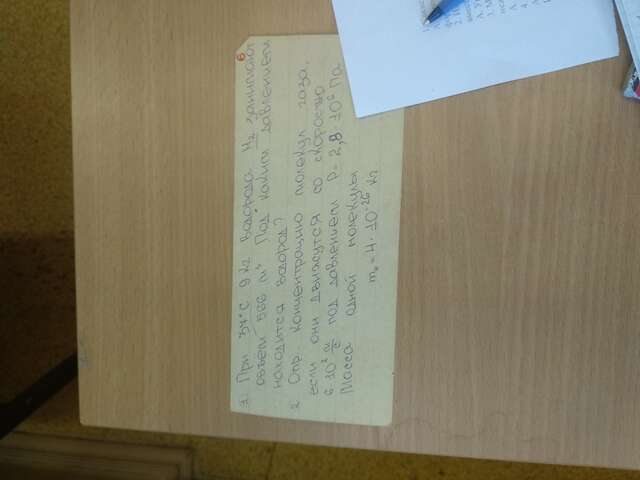 6
1 При 37°С 9 кг водорода H₂ занимают
объём 566 м³ Под каким давлением
находится водород?
2 Опр. концентрацию молекул газа,
если они движутся со скоростью
6·10² м/с под давлением P = 2,8·10⁶ Па
Масса одной молекулы
m₀ = 4·10⁻²⁶ кг